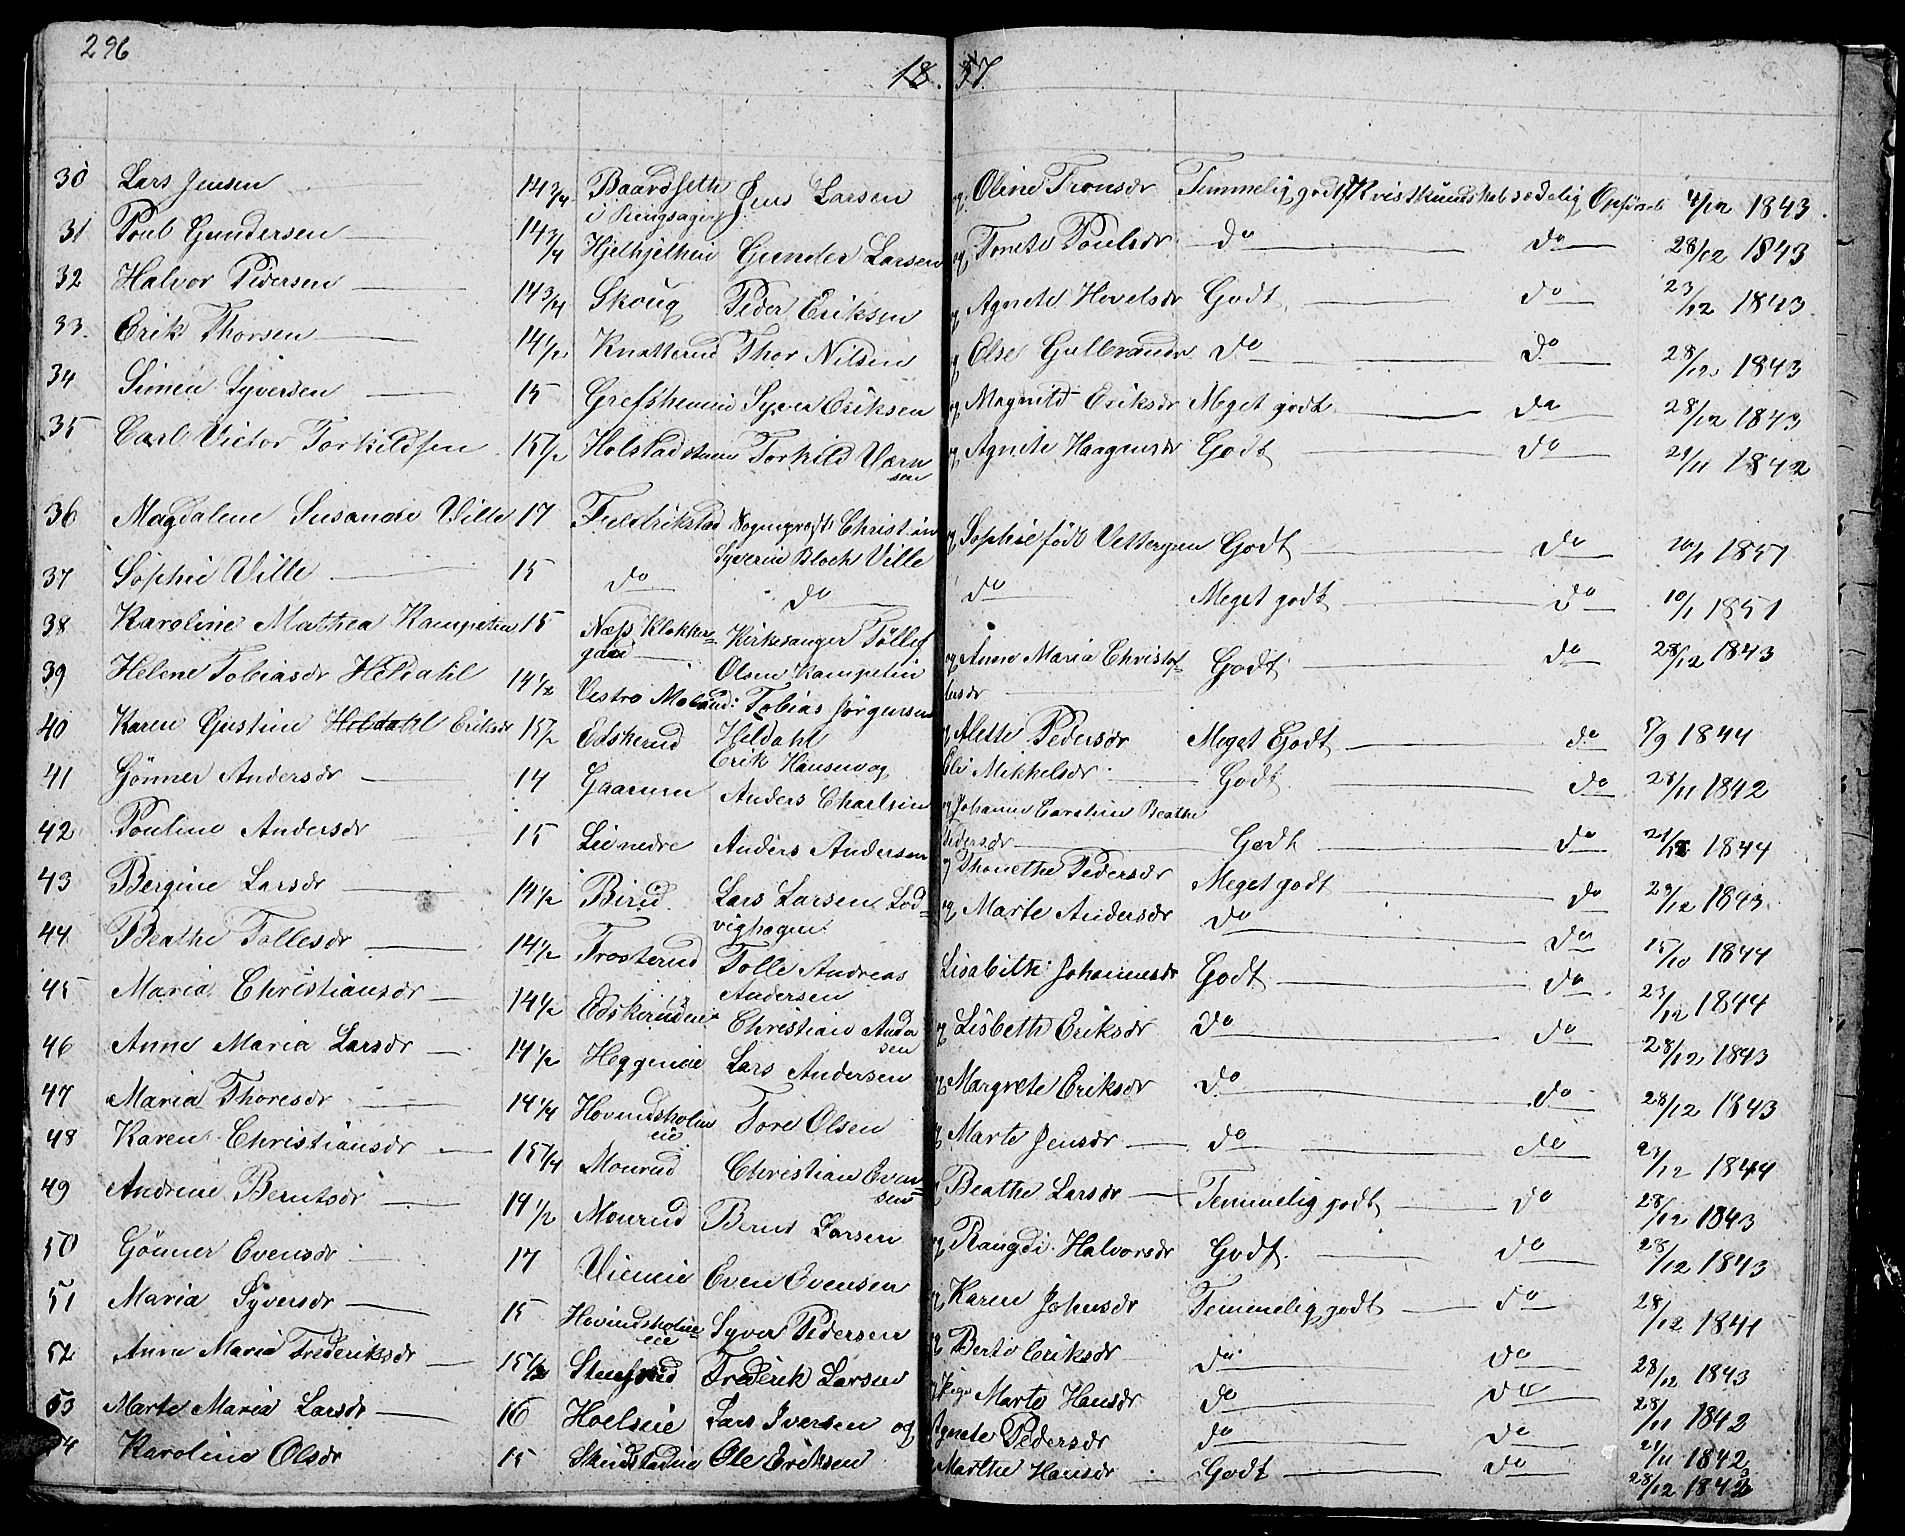 296
18 57.
30 Lars Jensen 14 3/4 Baardseth Jens Larsen og Oline Tronsdr Temmelig godt Kristkundskab sedelig Opførsel 4/12 1843.
i Ringsager
31 Poul Gundersen 14 3/4 Hjelhjelheie Gunder Larsen og Tonete Poulsdr do do 28/12 1843
32 Halvor Pedersen 14 3/4 Skoug Peder Eriksen og Agnete Hovelsdr Godt do 23/12 1843.
33. Erik Thorsen 14 1/2 Knatterud Thor Nilsen og Else Gulbrandsr do do 28/12 1843
34 Simen Syversen 15 Grefsheimeie Syver Eriksen og Magnild Eriksdr Meget godt do 28/12 1843
35 Carl Victor Torkildsen 15 1/2 Holstadstuen Torkild Værn og Agnete Haagensdr Godt do 29/11 1842
sen
36 Magdalene Susanne Ville 17 Fredrikstad Christian og Sophie født Vettergren Godt do 10/1 1851
Syverin Bloch Ville
37 Sophie Ville 15 do do do Meget godt do 10/1 1851
38 Karoline Mathea Kampetin 15 Næss Klokker= Kirkesanger Tøllef og Anne Maria Christof= Godt do 28/12 1843
gaard Olsen Kampetin fersdr
39 Helene Tobiasdr Heldahl 14 1/2 Vestre Mælum: Tobias Jørgensen og Alette Pedersdr Meget Godt do 5/9 1844
Heldahl
40 Karen Gustine Heldahl Eriksdr 15 1/2 Edskerud Erik Hansen og Eli Mikkelsdr Godt do 28/11 1842
41 Gønner Andersdr 14 Gaarum Anders Charlsen og Johanne Caroline Beathe
Pedersdr Godt do 21/12 1844
42 Pouline Andersdr 15 Liönedre Anders Andersen og Thonethe Pedersdr Meget godt do 29/12 1843
43 Bergine Larsdr 14 1/2 Birid Lars Larsen Lod= og Marte Andersdr do do 15/10 1844
vighagen
44 Beathe Tollesdr 14 1/2 Trosterud Tolle Andreas Lisabeth Johannesdr Godt do 23/12 1844
Andersen
45 Maria Christiansdr 14 1/2 Edskerudeie Christian Ander og Lisbeth Eriksdr do do 28/12 1843
sen
46 Anne Maria Larsdr 14 1/2 Heggeneie Lars Andersen og Margrete Eriksdr do do 28/12 1843
47 Maria Thoresdr 14 1/4 Hovindsholm Tore Olsen og Marte Jensdr do do 23/12 1844
eie
48 Karen Christiansdr 15 1/4 Mourud Christian Even= og Beathe Larsdr Temmelig godt do 28/12 1843
sen
49 Andrine Berntsdr 14 1/2 Mourud Bernt Larsen og Rangdi Halvorsdr Godt. do 28/12 1843
50 Gønner Evensdr 17 Vieneie Even Evensen og Karen Johnsdr Temmelig godt do 28/12 1841
51 Maria Syversdr 15 Hovindsholm= Syver Pedersen og Berte Eriksdr do do 28/12 1843
eie
52 Anne Maria Frederiksdr 15 1/2 Stensrud Frederik Larsen og Pige Marte Hansdr do do 28/11 1842
53 Marte Maria Larsdr 16 Hoelseie Lars Iversen og Agnete Pedersdr do do 21/11 1842
54 Karoline Olsdr 15 Skindstadeie Ole Eriksen Marthe Hansdr Godt do 28/12 1843